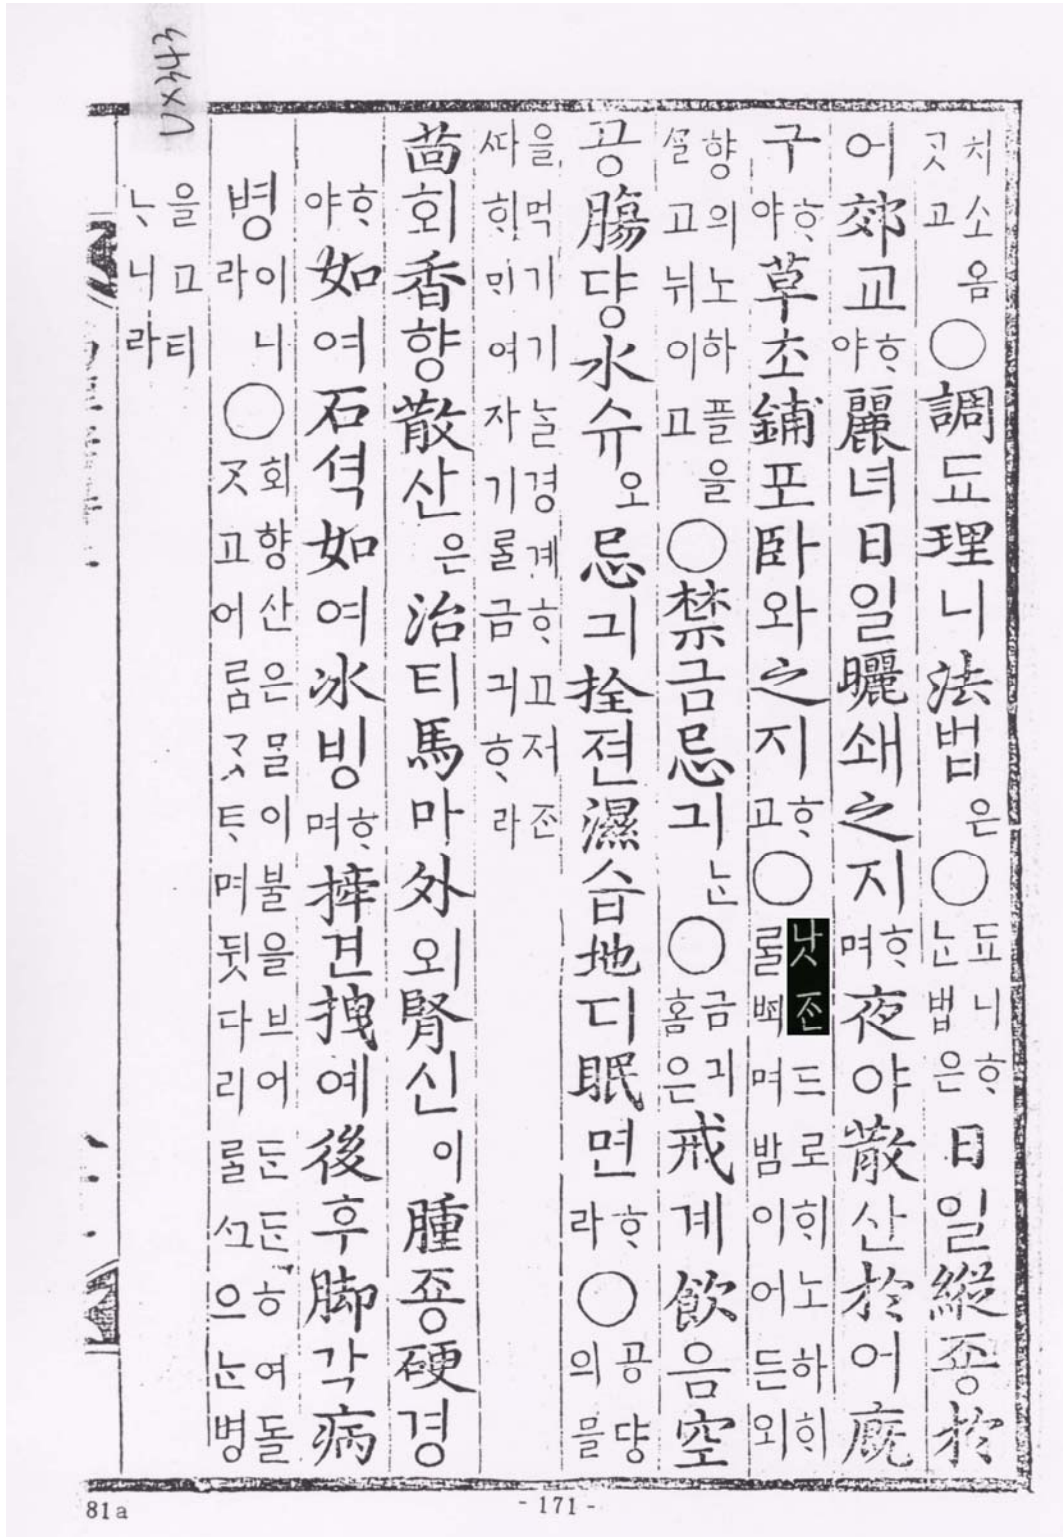 치소옴
곳고
○調됴理니法법은○됴니ᄒᆞ
ᄂᆞᆫ법은
日일縱죵於
어郊교ᄒᆞ야麗녀日일曬쇄之지ᄒᆞ며夜야散산於어廐
구ᄒᆞ야草초鋪포臥와之지ᄒᆞ고○낫졘드로ᄒᆡ노하ᄒᆡ
며밤이어든외
향의노하플을
고뉘이고
○禁금忌긔ᄂᆞᆫ○금긔
홈은
戒계飮음空
공腸댱水슈오忌긔拴젼濕습地디眠면ᄒᆞ라○공댱
의믈
을먹기기ᄂᆞᆯ경계ᄒᆞ고저즌
ᄯᅡᄒᆡᄆᆡ여자기ᄅᆞᆯ금긔ᄒᆞ라
茴회香향散산은治티馬마外외腎신이腫죵硬경
ᄒᆞ야如여石셕如여冰빙ᄒᆞ며搾견拽예後후脚각病
병이니라○회향산은ᄆᆞᆯ이불을브어ᄃᆞᆫᄃᆞᆫᄒᆞ여돌
ᄀᆞᆺ고어름ᄀᆞᆺᄐᆞ며뒷다리ᄅᆞᆯᄭᅳ으ᄂᆞᆫ병
을고티
ᄂᆞ니라
81a
- 171 -